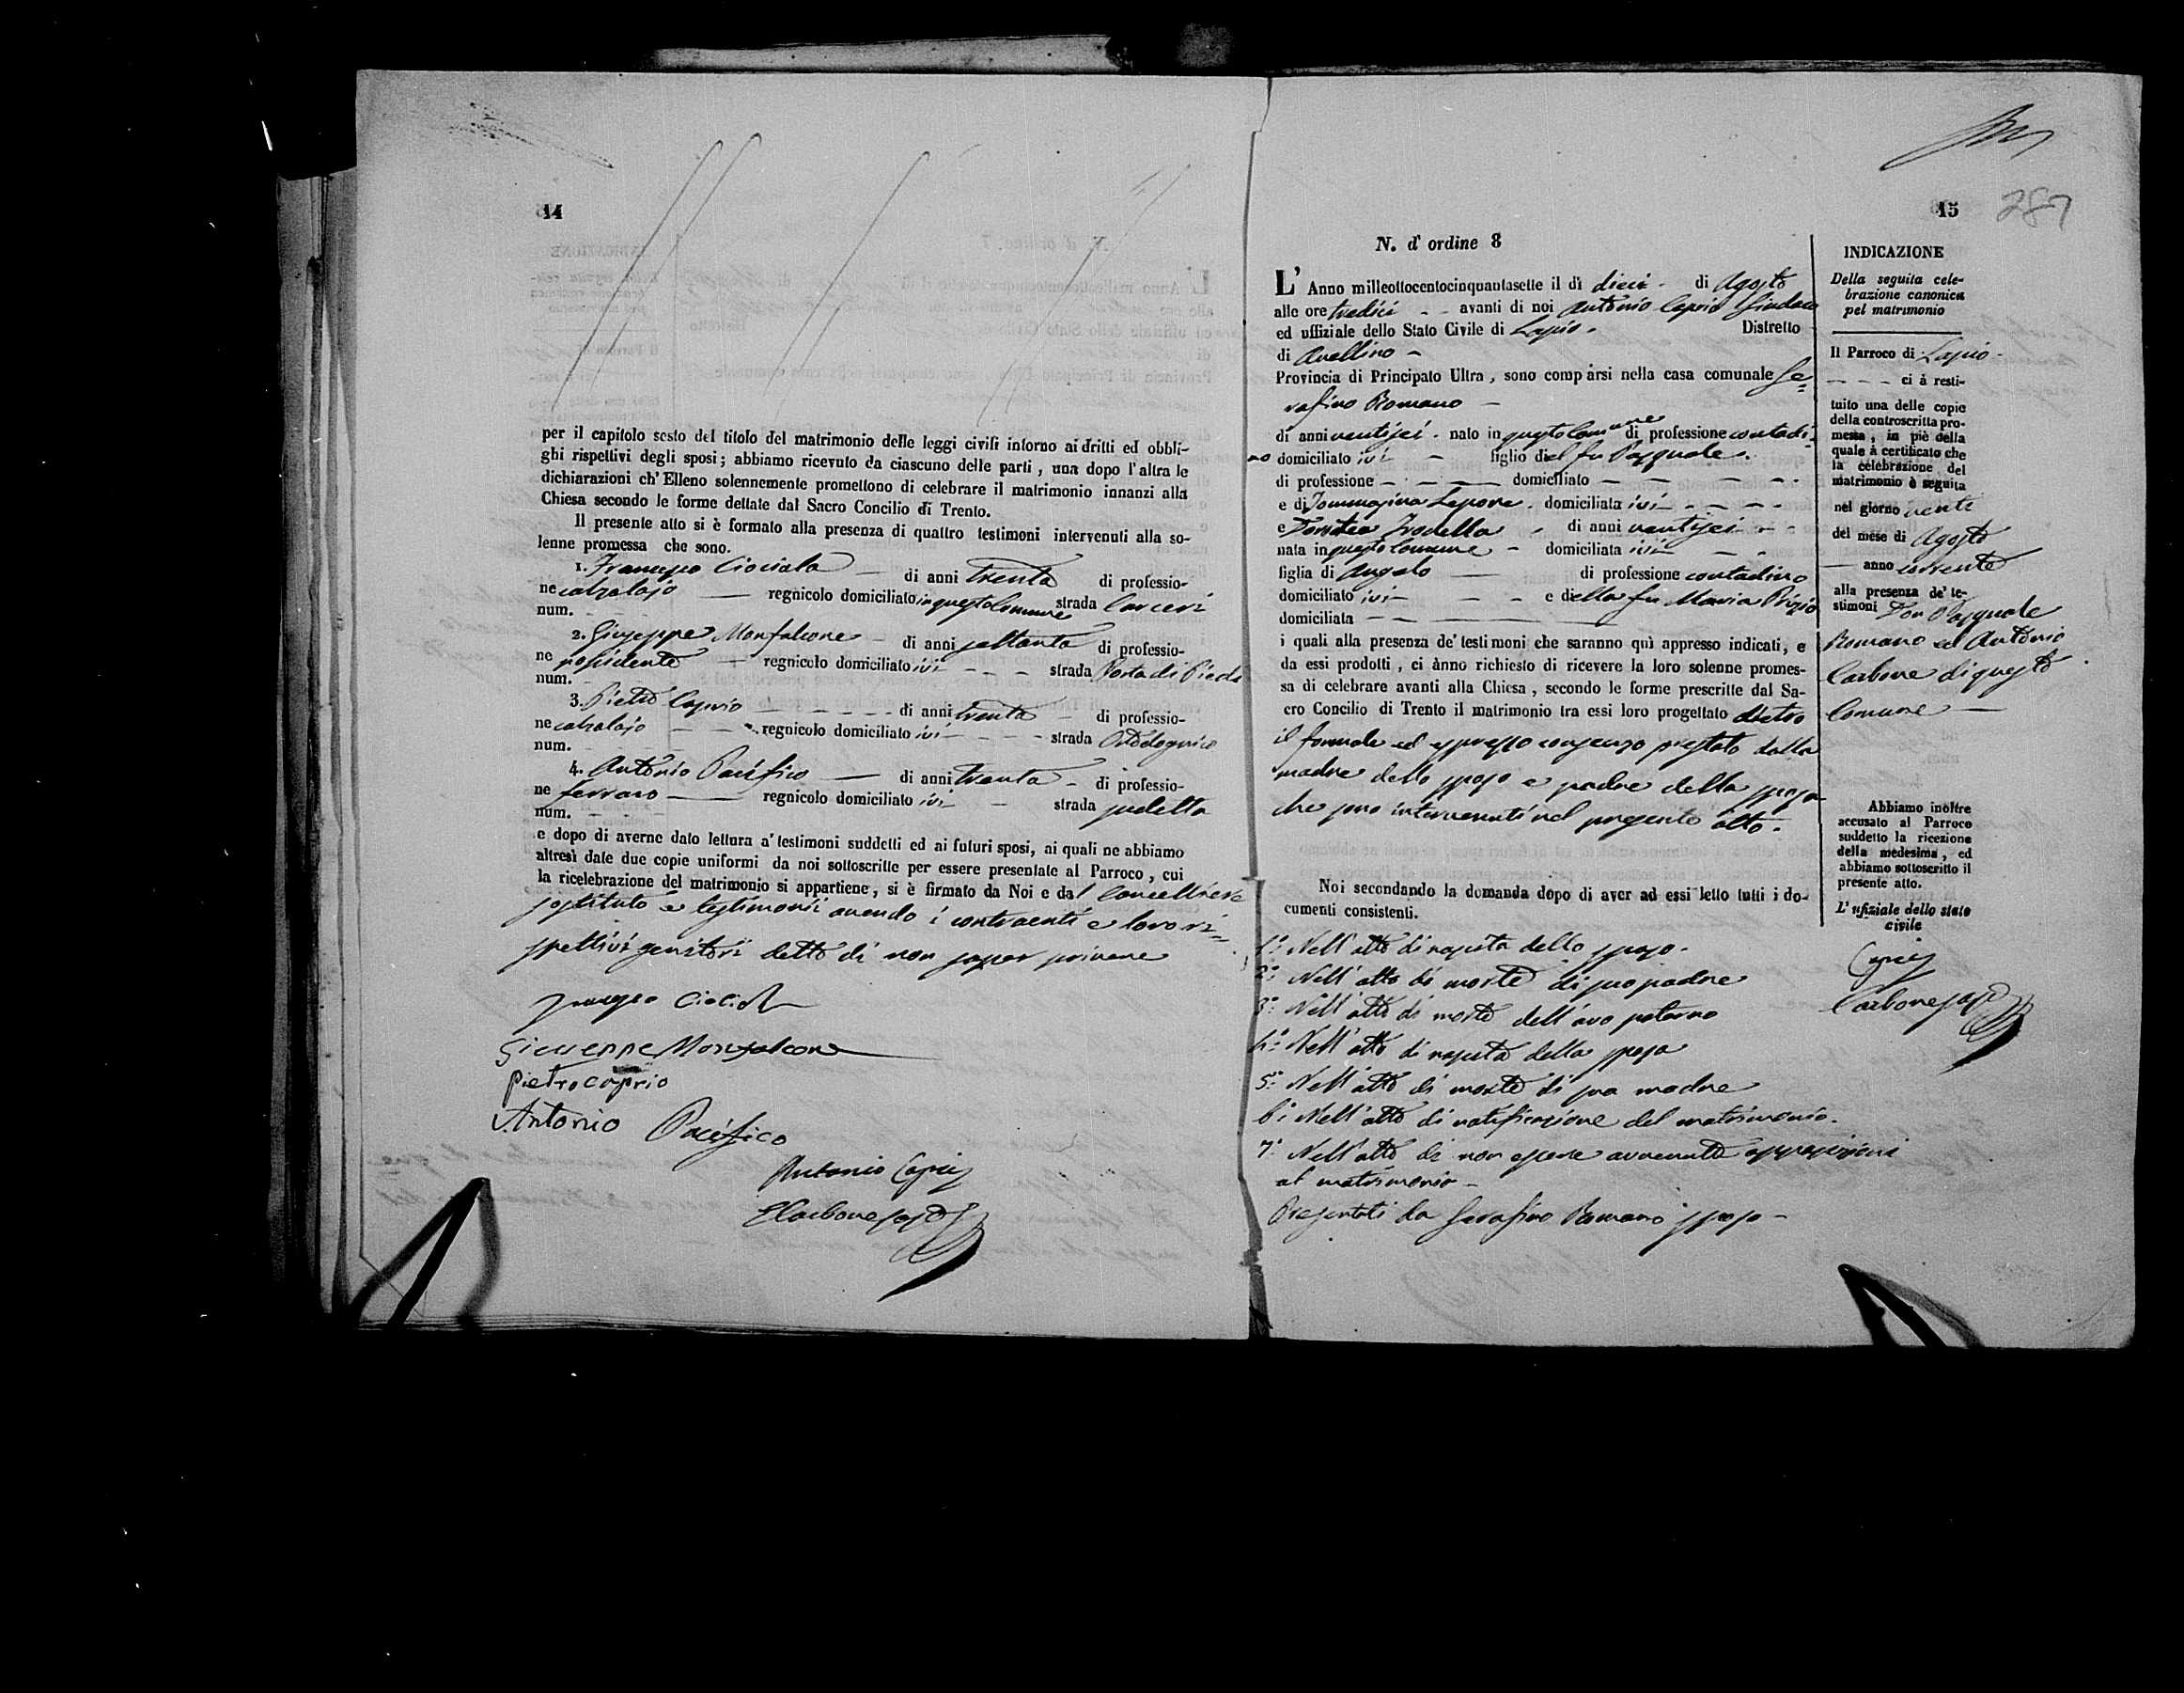 14
per il capitolo sesto del titolo del matrimonio delle leggi civili intorno ai dritti ed obbli-
ghi rispettivi degli sposi; abbiamo ricevuto da ciascuno delle parti, una dopo l'altra le
dichiarazioni ch'Elleno solennemente promettono di celebrare il matrimonio innanzi alla
Chiesa secondo le forme dettate dal Sacro Concilio di Trento.
Il presente atto si è formato alla presenza di quattro testimoni intervenuti alla so-
lenne promessa che sono.
1. Francesco Ciociola di anni trenta di professio-
ne calzolajo regnicolo domiciliato in questo Comune strada Carceri
num.
2. Giuseppe Monfalcone di anni settanta di professio-
ne possidente regnicolo domiciliato ivi strada Porta di Piedi
num.
3. Pietro Caprio di anni trenta di professio-
ne calzolajo regnicolo domiciliato ivi strada
num.
4. Antonio Pacifico di anni trenta di professio-
ne ferraro regnicolo domiciliato ivi strada
num.
e dopo di averne dato lettura a' testimoni suddetti ed ai futuri sposi, ai quali ne abbiamo
altresì date due copie uniformi da noi sottoscritte per essere presentate al Parroco, cui
la ricelebrazione del matrimonio si appartiene, si è firmato da Noi e dal Cancelliere
sostituto e testimonii avendo i contraenti e loro ri=
spettivi genitori detto di non saper scrivere
Giuseppe Monfalcone
Pietro Caprio
Antonio Pacifico
Antonio Caprio
Carbone sost
15
287
N. d' ordine 8
L' Anno milleottocentocinquantasette il dì dieci di Agosto
alle ore tredici avanti di noi Antonio Caprio Sindaco
ed uffiziale dello Stato Civile di Lapio. Distretto
di Avellino
Provincia di Principato Ultra, sono comparsi nella casa comunale Se=
rafino Romano
di anni ventisei nato in questo Comune di professione contadi-
no domiciliato ivi figlio del fu Pasquale
di professione domiciliato
e di Tommasina Lepore domiciliata ivi
e Dorotea Trodella di anni ventisei
nata in questo Comune domiciliata ivi
figlia di Angelo di professione contadino
domiciliato ivi e della fu Maria Prizio
domiciliata
i quali alla presenza de' testimoni che saranno quì appresso indicati, e
da essi prodotti, ci ànno richiesto di ricevere la loro solenne promes-
sa di celebrare avanti alla Chiesa, secondo le forme prescritte dal Sa-
cro Concilio di Trento il matrimonio tra essi loro progettato dietro
il formale ed espresso consenso prestato dalla
madre dello sposo e padre della sposa
che sono intervenuti nel presente atto.
Noi secondando la domanda dopo di aver ad essi letto tutti i do-
cumenti consistenti.
1.º Nell'atto di nascita dello sposo.
2.º Nell'atto di morte di suo padre
3.º Nell'atto di morte dell'avo paterno
4.º Nell'atto di nascita della sposa
5.º Nell'atto di morte di sua madre
6.º Nell'atto di notificazione del matrimonio.
7.º Nell'atto di non essere avvenute opposizioni
al matrimonio
Presentati da Serafino Romano sposo
INDICAZIONE
Della seguita cele-
brazione canonica
pel matrimonio
Il Parroco di Lapio
ci à resti-
tuito una delle copie
della controscritta pro-
messa, in piè della
quale à certificato che
la celebrazione del
matrimonio è seguita
nel giorno venti
del mese di Agosto
anno corrente
alla presenza de' te-
stimoni Don Pasquale
Romano ed Antonio
Carbone di questo
Comune
Abbiamo inoltre
accusato al Parroco
suddetto la ricezione
della medesima, ed
abbiamo sottoscritto il
presente atto.
L'ufiziale dello stato
civile
Caprio
Carbone sost